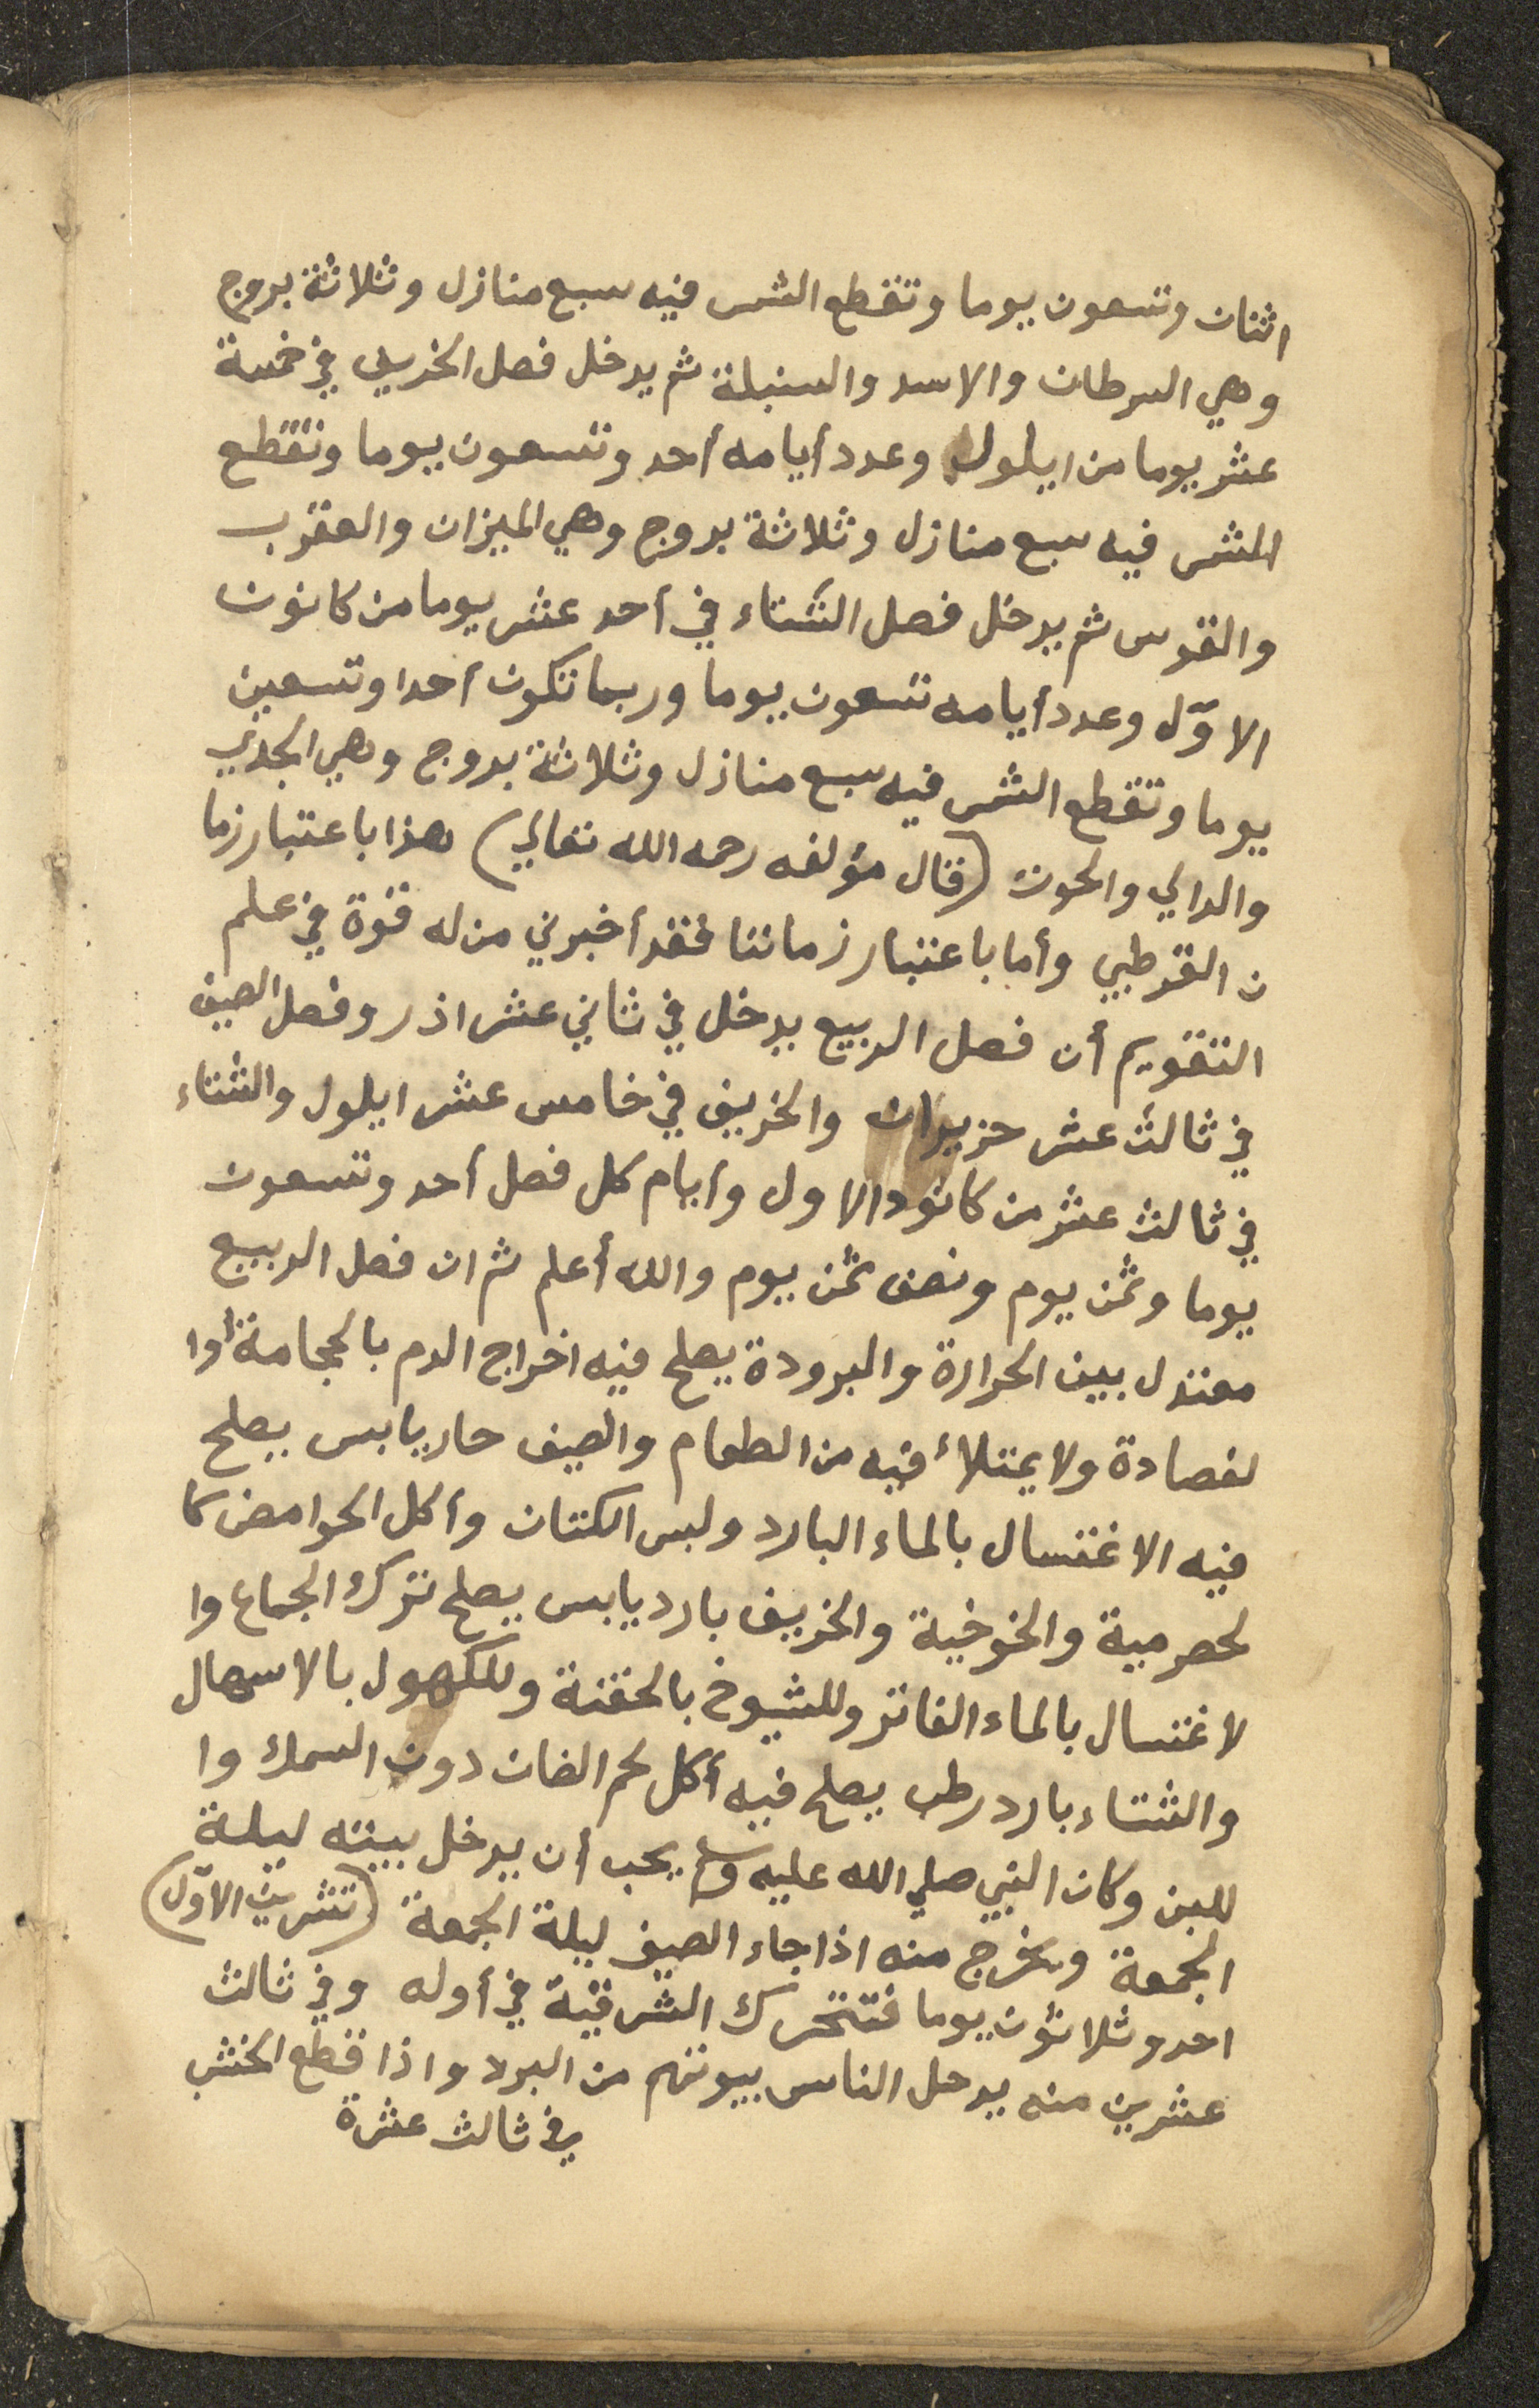 اثنان وتسعون يوما وتقطع الشمس فيه سبع منازل وثلاثة بروج
وهي السرطان والاسد والسنبلة ثم يدخل فصل الخريف في خمسة
عشر يوما من ايلول وعدد أيامه أحد وتسعون يوما وتقطع
الشمس فيه سبع منازل وثلاثة بروج وهي الميزان والعقرب
والقوس ثم يدخل فصل الشتاء في أحد عشر يوما من كانون
الاوّل وعدد أيامه تسعون يوما وربما تكون أحدا وتسعين
يوما وتقطع الشمس فيه سبع منازل وثلاثة بروج وهي الجدي
والدالي والحوت (قال مؤلفه رحمه الله تعالي) هذا باعتبار زما
ن القرطبي وأما باعتبار زماننا فقد أخبرني من له قوة في علم
التقويم أن فصل الربيع يدخل في ثاني عشر اذر وفصل الصيف
في ثالث عشر حزيران والخريف في خامس عشر ايلول والشتاء
في ثالث عشر من كانود الاول وأيام كل فصل أحد وتسعون
يوما وثمن يوم ونصف ثمن يوم والله أعلم ثم ان فصل الربيع
معتدل بين الحرارة والبرودة يصلح فيه اخراج الدم بالحجامة اوا
لفصادة ولا يمتلاء فيه من الطعام والصيف حار يابس يصلح
فيه الاغتسال بالماء البارد ولبس الكتان وأكل الحوامض كا
لحصرمية والخوخية والخريف بارد يابس يصلح ترك الجماع وا
لاغتسال بالماء الفاتر وللشيوخ بالحقنة وللكهول بالاسهال
والشتاء بارد رطب يصلح فيه أكل لحم الضان دون السمك وا
للبن وكان النبي صلي الله عليه وسلم يحب أن يدخل بيته ليلة
الجمعة ويخرج منه اذا جاء الصيف ليلة الجمعة (تشرين الاوّل)
احد وثلاثون يوما فتتحرك الشرقية في أوله وفي ثالث
عشرين منه يدخل الناس بيوتهم من البرد واذا قطع الخشب
في ثالث عشرة